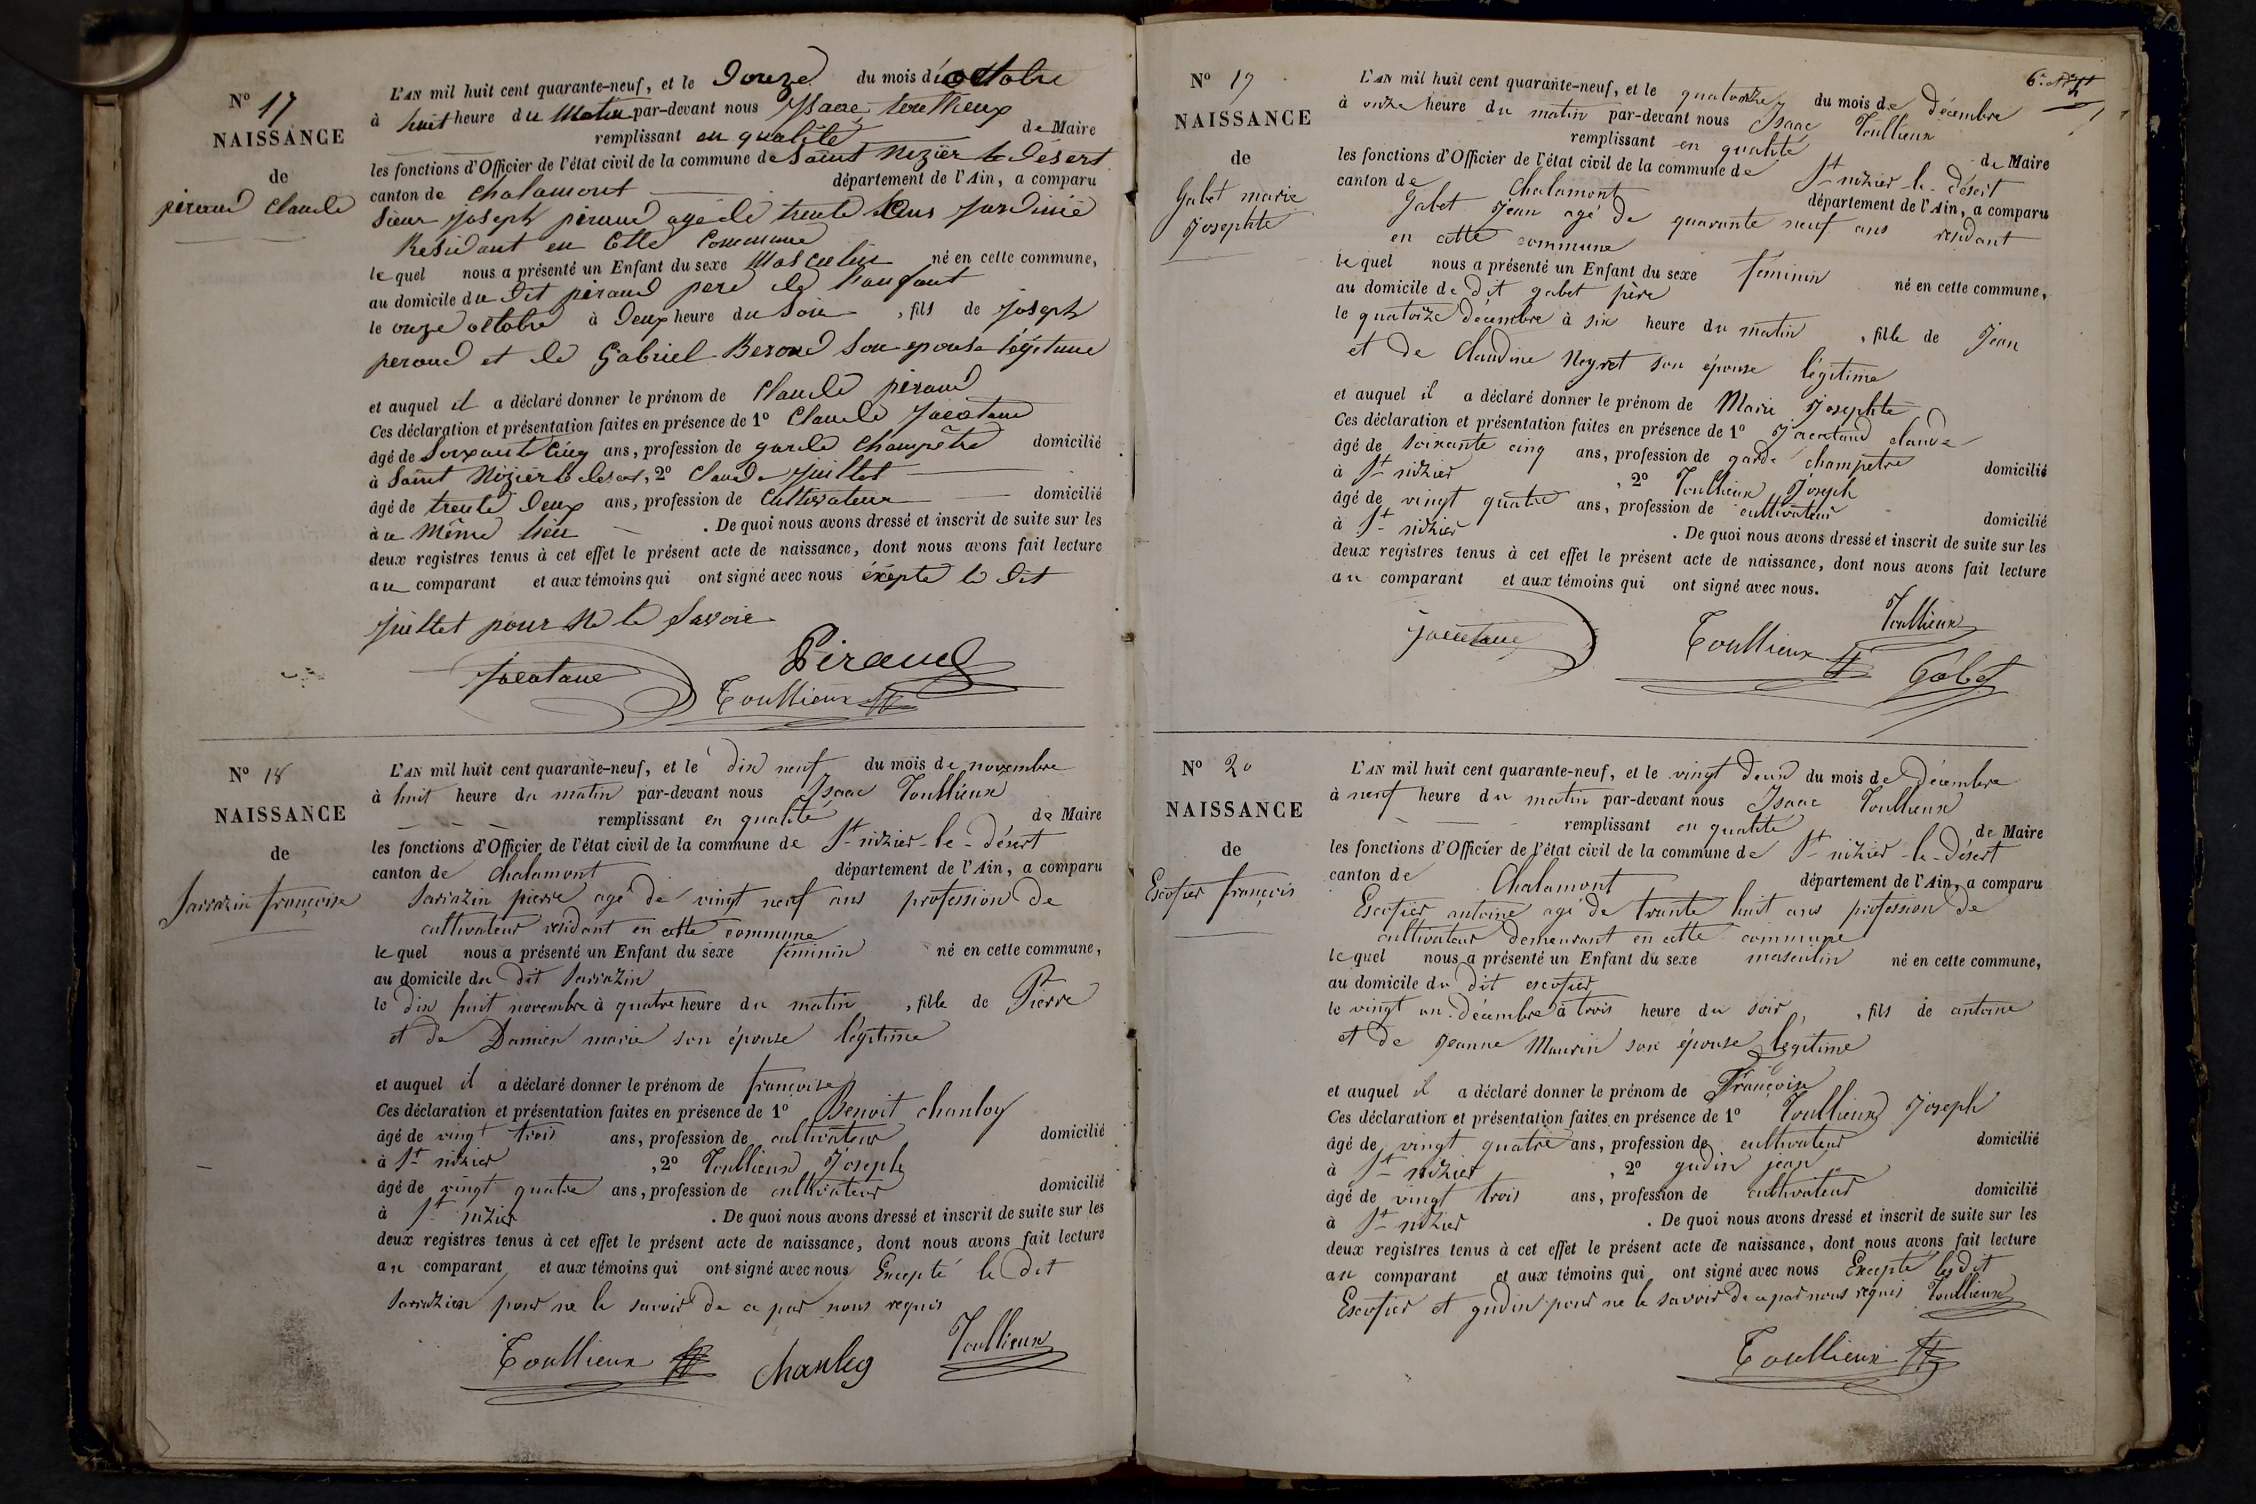 N° 17
NAISSANCE
de
péraud Claude
L'AN mil huit cent quarante-neuf, et le Douze du mois d'octobre
à huit heure du Matin par-devant nous
remplissant en qualité de Maire
les fonctions d'Officier de l'état civil de la commune de Saint Nizier le Désert
canton de Chalamont département de l'Ain, a comparu
Sieur Joseph péraud agé de trente ans Jardinié
Residant en Cette Commune
lequel nous a présenté un Enfant du sexe Masculin né en cette commune,
au domicile du Dit péraud pere de l'anfant
le onze octobre à Deux heure du Soir, fils de Joseph
peraud et de Gabriel Beroud Son epouse légitime
et auquel il a déclaré donner le prénom de Claude péraud
Ces déclaration et présentation faites en présence de 1° Claude Jacataud
âgé de Soixante Cinq ans, profession de garde Champêtre domicilié
à Saint Nizier le desert, 2° Claude Juillet
âgé de trente Deux ans, profession de Cultivateur domicilié
au Même lieu. De quoi nous avons dressé et inscrit de suite sur les
deux registres tenus à cet effet le présent acte de naissance, dont nous avons fait lecture
au comparant et aux témoins qui ont signé avec nous éxepté le Dit
Juillet pour Ne le Savoir
Jacataud
Péraud
Toullieux
N° 18
NAISSANCE
de
Sarrazin françoise
L'AN mil huit cent quarante-neuf, et le dix neuf du mois de novembre
à huit heure du matin par-devant nous Isaac Toullieux
remplissant en qualité de Maire
les fonctions d'Officier de l'état civil de la commune de St nizier-le-désert
canton de Chalamont département de l'Ain, a comparu
Sarrazin pierre agé de vingt neuf ans profession de
cultivateur residant en cette commune
lequel nous a présenté un Enfant du sexe feminin né en cette commune,
au domicile du dit Sarrazin
le dix huit novembre à quatre heure du matin, fille de Pierre
et de Damien marie son épouse légitime
et auquel il a déclaré donner le prénom de françoise
Ces déclaration et présentation faites en présence de 1° Benoit chanloy
âgé de vingt trois ans, profession de cultivateur domicilié
à St nizier, 2° Toullieux Joseph
âgé de vingt quatre ans, profession de cultivateur domicilié
à St nizier. De quoi nous avons dressé et inscrit de suite sur les
deux registres tenus à cet effet le présent acte de naissance, dont nous avons fait lecture
au comparant et aux témoins qui ont signé avec nous Excepté le dit
Sarrazien pour ne le savoir de ce par nous requis
Toullieux chanley Toullieux
N° 19
NAISSANCE
de
Gabet marie
Josephte
L'AN mil huit cent quarante-neuf, et le quatorze du mois de décembre
à onze heure du matin par-devant nous Isaac Toullieux
remplissant en qualité de Maire
les fonctions d'Officier de l'état civil de la commune de St nizier-le-désert
canton de Chalamont département de l'Ain, a comparu
Gabet Jean agé de quarante neuf ans residant
en cette commune
lequel nous a présenté un Enfant du sexe feminin né en cette commune,
au domicile de dit gabet père
le quatorze décembre à six heure du matin, fille de Jean
et de Claudine Neyret son épouse légitime
et auquel il a déclaré donner le prénom de Marie Josephte
Ces déclaration et présentation faites en présence de 1° Jacataud claude
âgé de soixante cinq ans, profession de garde champetre domicilié
à St nizier, 2° Toullieux Joseph
âgé de vingt quatre ans, profession de cultivateur domicilié
à St nizier. De quoi nous avons dressé et inscrit de suite sur les
deux registres tenus à cet effet le présent acte de naissance, dont nous avons fait lecture
au comparant et aux témoins qui ont signé avec nous.
Jacataud Toullieux Toullieux
Gabet
N° 20
NAISSANCE
de
Escofier françois
L'AN mil huit cent quarante-neuf, et le vingt deux du mois de décembre
à neuf heure du matin par-devant nous Isaac Toullieux
remplissant en qualité de Maire
les fonctions d'Officier de l'état civil de la commune de St nizier-le-Désert
canton de Chalamont département de l'Ain, a comparu
Escofier antoine agé de trante huit ans profession de
cultivateur demeurant en cette commune
lequel nous a présenté un Enfant du sexe masculin né en cette commune,
au domicile du dit escofier
le vingt un décembre à trois heure du soir, fils de antoine
et de Jeanne Maurin son épouse légitime
et auquel il a déclaré donner le prénom de François
Ces déclaration et présentation faites en présence de 1° Toullieux Joseph
âgé de vingt quatre ans, profession de cultivateur domicilié
à St nizier, 2° gudin jean
âgé de vingt trois ans, profession de cultivateur domicilié
à St nizier. De quoi nous avons dressé et inscrit de suite sur les
deux registres tenus à cet effet le présent acte de naissance, dont nous avons fait lecture
au comparant et aux témoins qui ont signé avec nous Excepté les dit
Escofier et gudin pour ne le savoir de ce par nous requis Toullieux
Toullieux